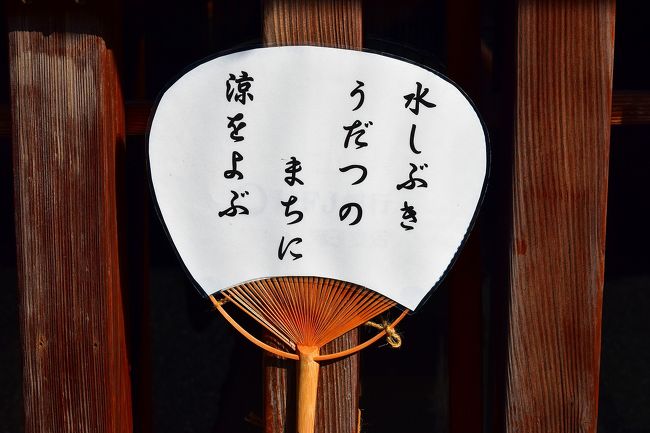 水しぶき
うだつの
まちに
涼をよぶ